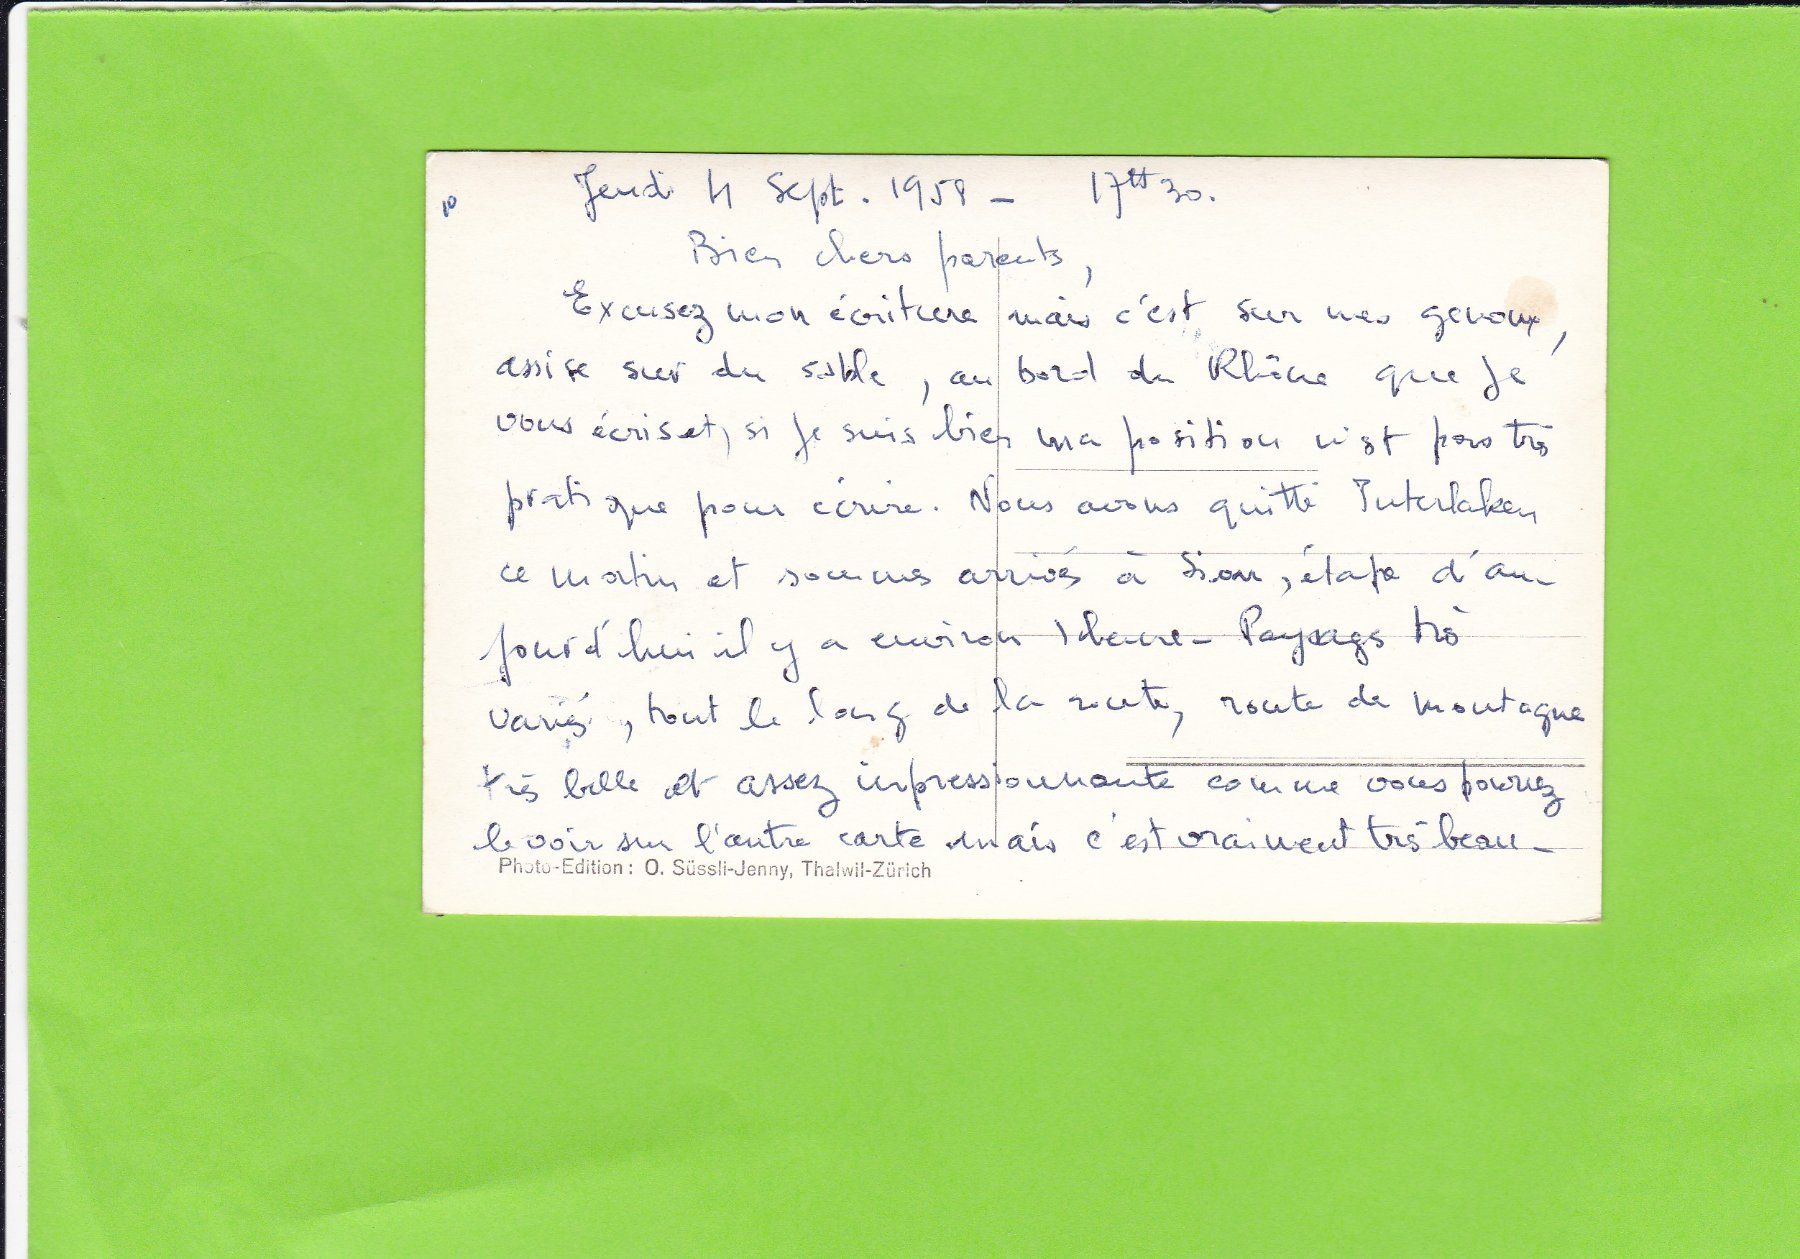 Jeudi 4 Sept. 1958 - 17H30.
Bien chers parents,
Excusez mon écriture mais c'est sur mes genoux,
assise sur du sable, au bord du Rhône que je
vous écris et, si je suis bien ma position n'est pas très
pratique pour écrire. Nous avons quitté Interlaken
ce matin et sommes arrivés à Sion, étape d'au-
jourd'hui il y a environ 1 heure - Paysages très
variés, tout le long de la route, route de montagne
très belle et assez impressionnante comme vous pourrez
le voir sur l'autre carte mais c'est vraiment très beau -
Photo-Edition: O. Süssli-Jenny, Thalwil-Zürich